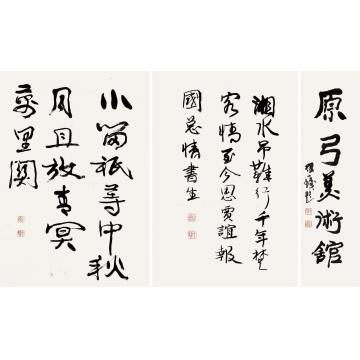 原弓美術館
湘水吊難行千年楚
客情至今思賈誼報
國 情書生
小留祗等中秋
月且放青冥
萬里闊